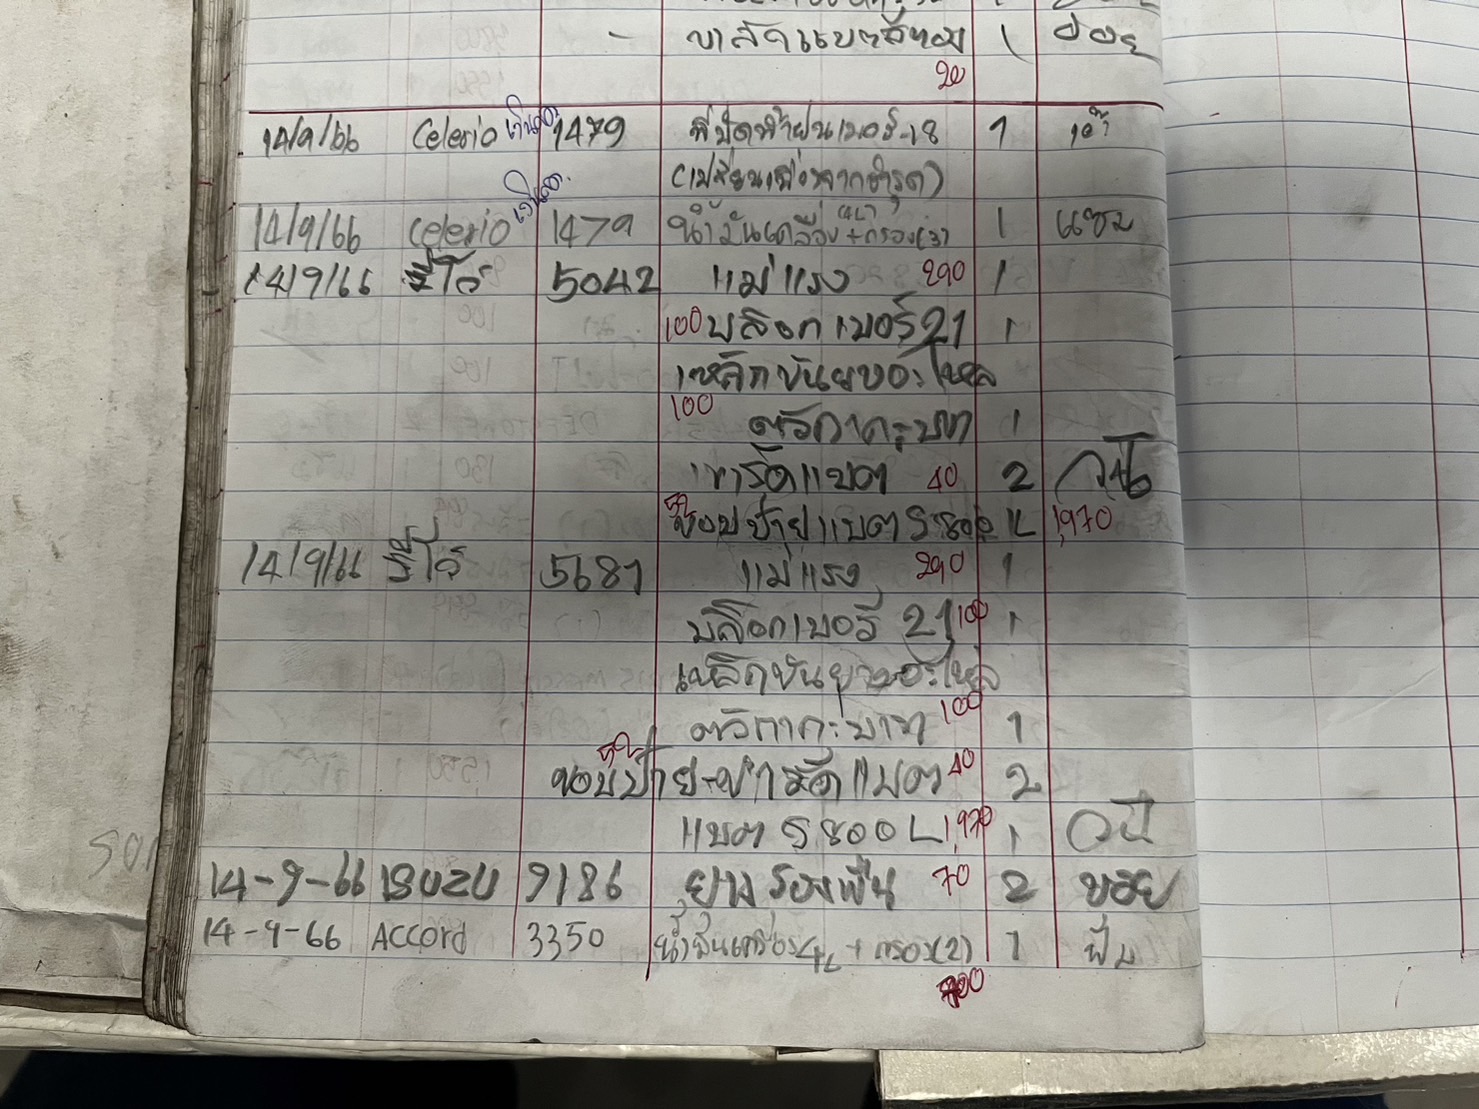 ขาลัดแบตสีทอง 1
20
14/9/66 Celerio เงินสด 1479 ที่ปัดน้ำฝนเบอร์ 18 1
(เปลี่ยนเนื่องจากชำรุด)
14/9/66 Celerio เงินสด 1479 น้ำมันเครื่อง (4L) + กรอง(3) 1 แชม
14/9/66 รีโว่ 5042 แม่แรง 290 1
100 บล็อกเบอร์ 21 1
เหล็กขันยางอะไหล่
100 ตัวกากะบาท 1
ขารัดแบต 40 2
ขอบป้าย แบต S 800 L 1,970
14/9/66 รีโว่ 5681 แม่แรง 290 1
บล็อกเบอร์ 21 100 1
เหล็กขันยางอะไหล่
ตัวกากะบาท 100 1
ขอบป้าย-ขารัดแบต 40 2
แบต S 800 L 1,970 1
14-9-66 ISUZU 9186 ยางรองพื้น 70 2
14-9-66 Accord 3350 น้ำมันเครื่อง 4L + กรอง(2) 1